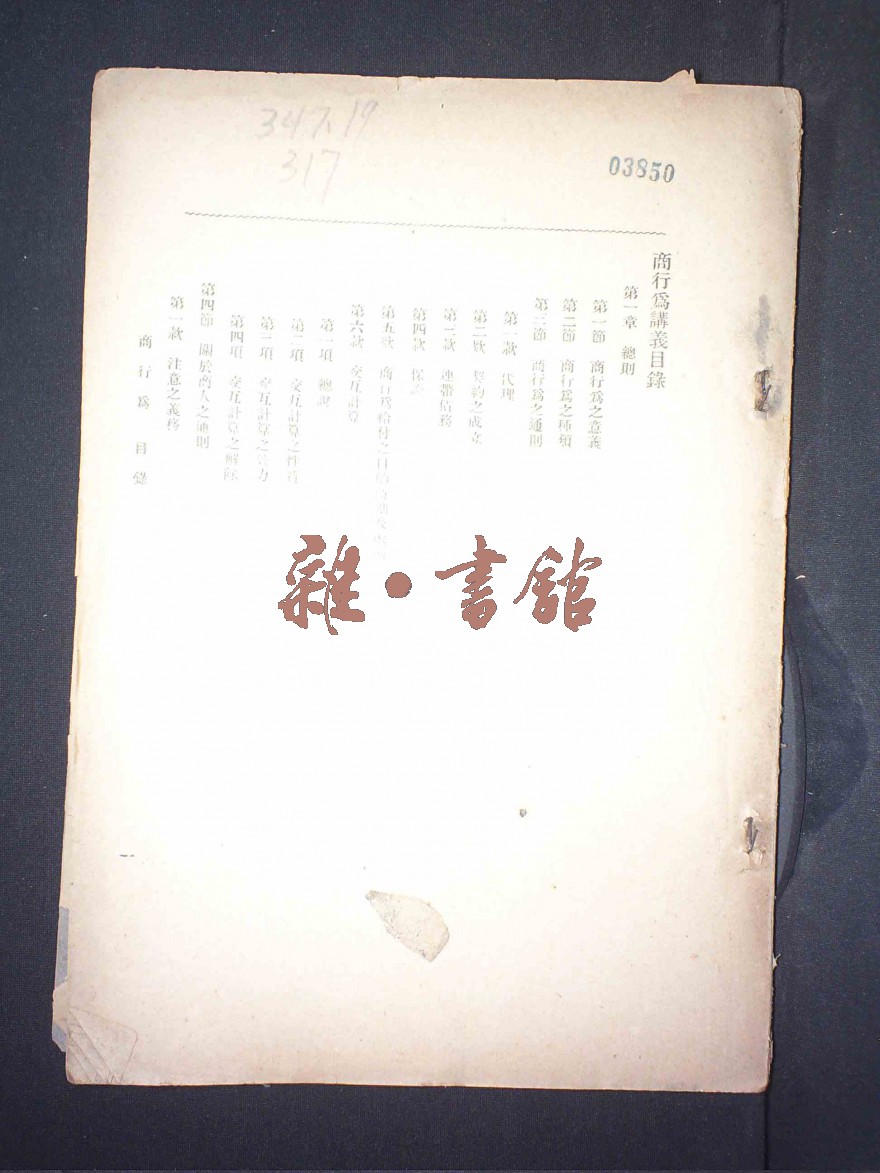 347.19
317
03850
商行爲講義目錄
第一章 總則
第一節 商行爲之意義
第二節 商行爲之種類
第三節 商行爲之通則
第一款 代理
第二款 契約之成立
第三款 連帶債務
第四款 保
第五款 商行爲給付之目的
第六款 交互計算
第一項 總說
第二項 交互計算之性質
第三項 交互計算之效力
第四項 交互計算之解除
第四節 關於商人之通則
第一款 注意之義務
商行爲 目錄
雜·書館